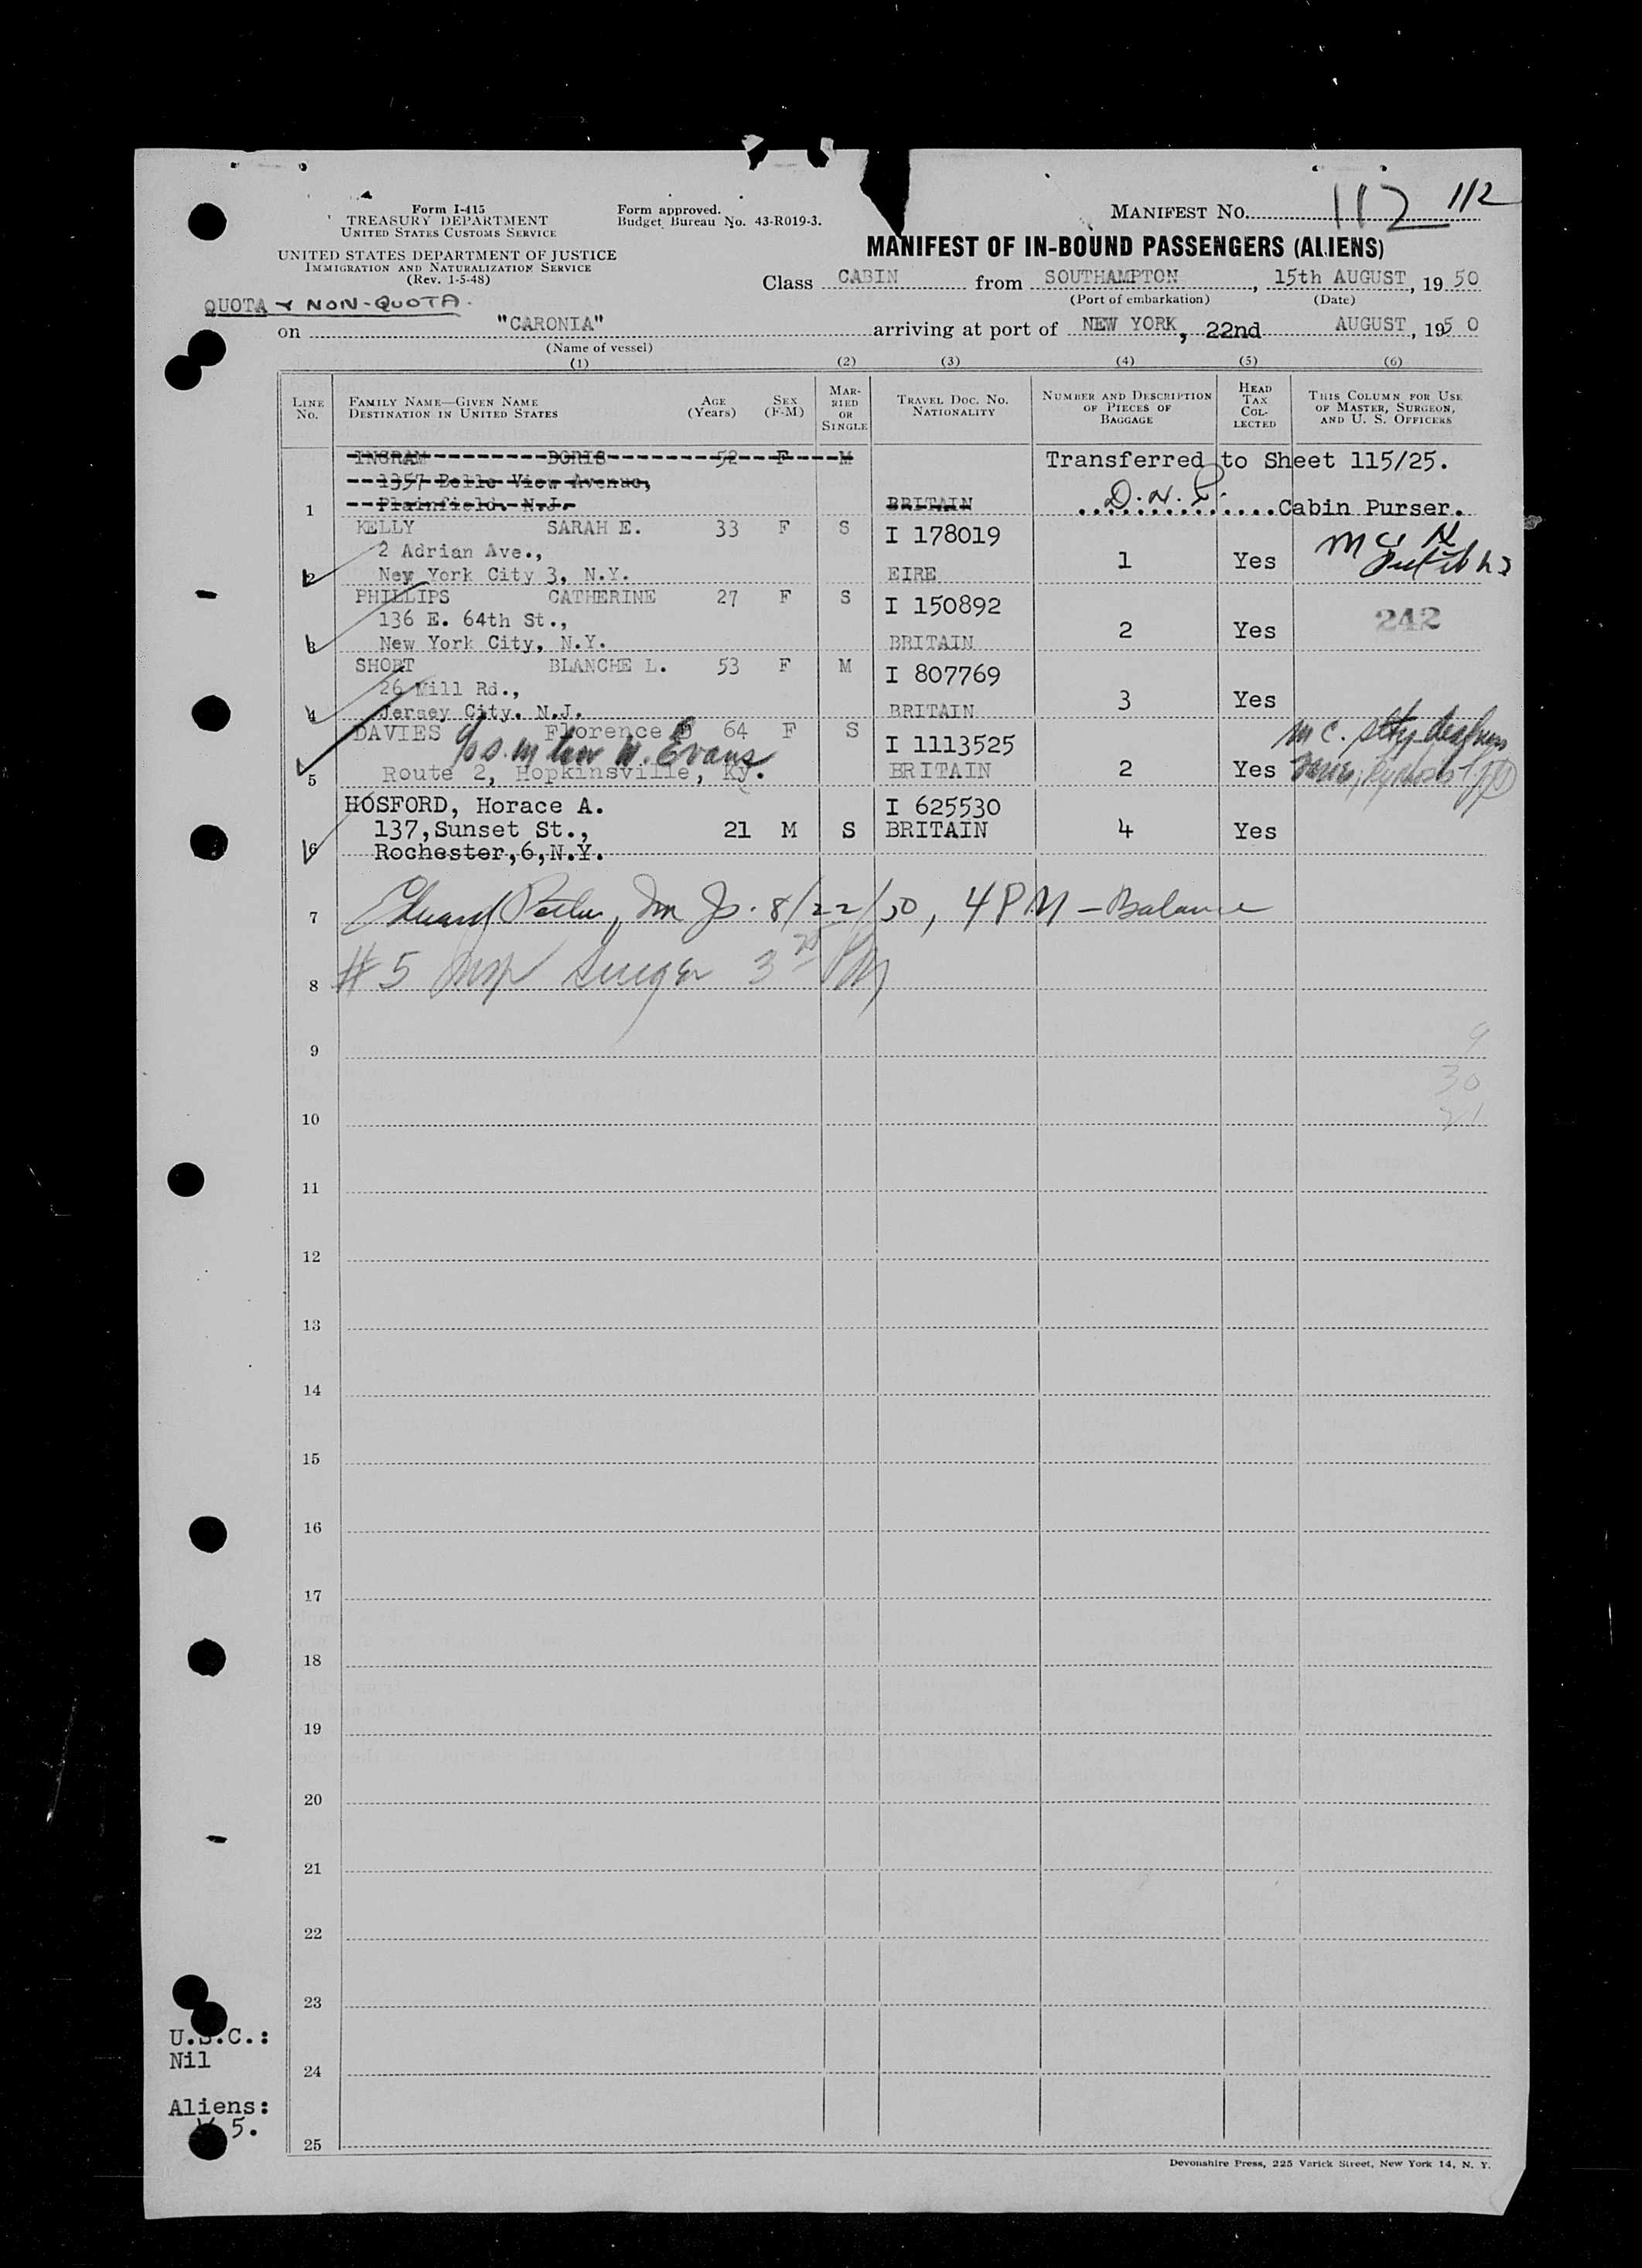 Form I-415
TREASURY DEPARTMENT
UNITED STATES CUSTOMS SERVICE
UNITED STATES DEPARTMENT OF JUSTICE
IMMIGRATION AND NATURALIZATION SERVICE
(Rev. 1-5-48)
Form approved.
Budget Bureau No. 43-R019-3.
MANIFEST NO. 112 112
MANIFEST OF IN-BOUND PASSENGERS (ALIENS)
Class CABIN from SOUTHAMPTON, 15th AUGUST, 1950
(Port of embarkation) (Date)
QUOTA & NON-QUOTA.
on "CARONIA" arriving at port of NEW YORK, 22nd AUGUST, 1950
(Name of vessel)
(1) (2) (3) (4) (5) (6)
LINE NO. FAMILY NAME—GIVEN NAME DESTINATION IN UNITED STATES AGE (Years) SEX (F-M) MARRIED OR SINGLE TRAVEL DOC. NO. NATIONALITY NUMBER AND DESCRIPTION OF PIECES OF BAGGAGE HEAD TAX COLLECTED THIS COLUMN FOR USE OF MASTER, SURGEON, AND U. S. OFFICERS
INGRAM DORIS 52 F M Transferred to Sheet 115/25.
1357 Belle View Avenue,
1 Plainfield. N.J. BRITAIN D.N.P. Cabin Purser.
KELLY SARAH E. 33 F S I 178019
2 Adrian Ave.,
2 New York City 3, N.Y. EIRE 1 Yes
PHILLIPS CATHERINE 27 F S I 150892
136 E. 64th St., 242
3 New York City, N.Y. BRITAIN 2 Yes
SHORT BLANCHE L. 53 F M I 807769
26 Mill Rd.,
4 Jersey City. N.J. BRITAIN 3 Yes
DAVIES Florence 64 F S I 1113525
W. Evans
5 Route 2, Hopkinsville, Ky. BRITAIN 2 Yes
HOSFORD, Horace A. I 625530
137, Sunset St., 21 M S BRITAIN 4 Yes
6 Rochester, 6, N.Y.
7 8/22/50, 4 PM - Balance
8 #5 Insp Singer 3 PM
9
9
30
10
21
11
12
13
14
15
16
17
18
19
20
21
22
23
U.S.C.:
Nil
24
Aliens:
5.
25
Devonshire Press, 225 Varick Street, New York 14, N. Y.